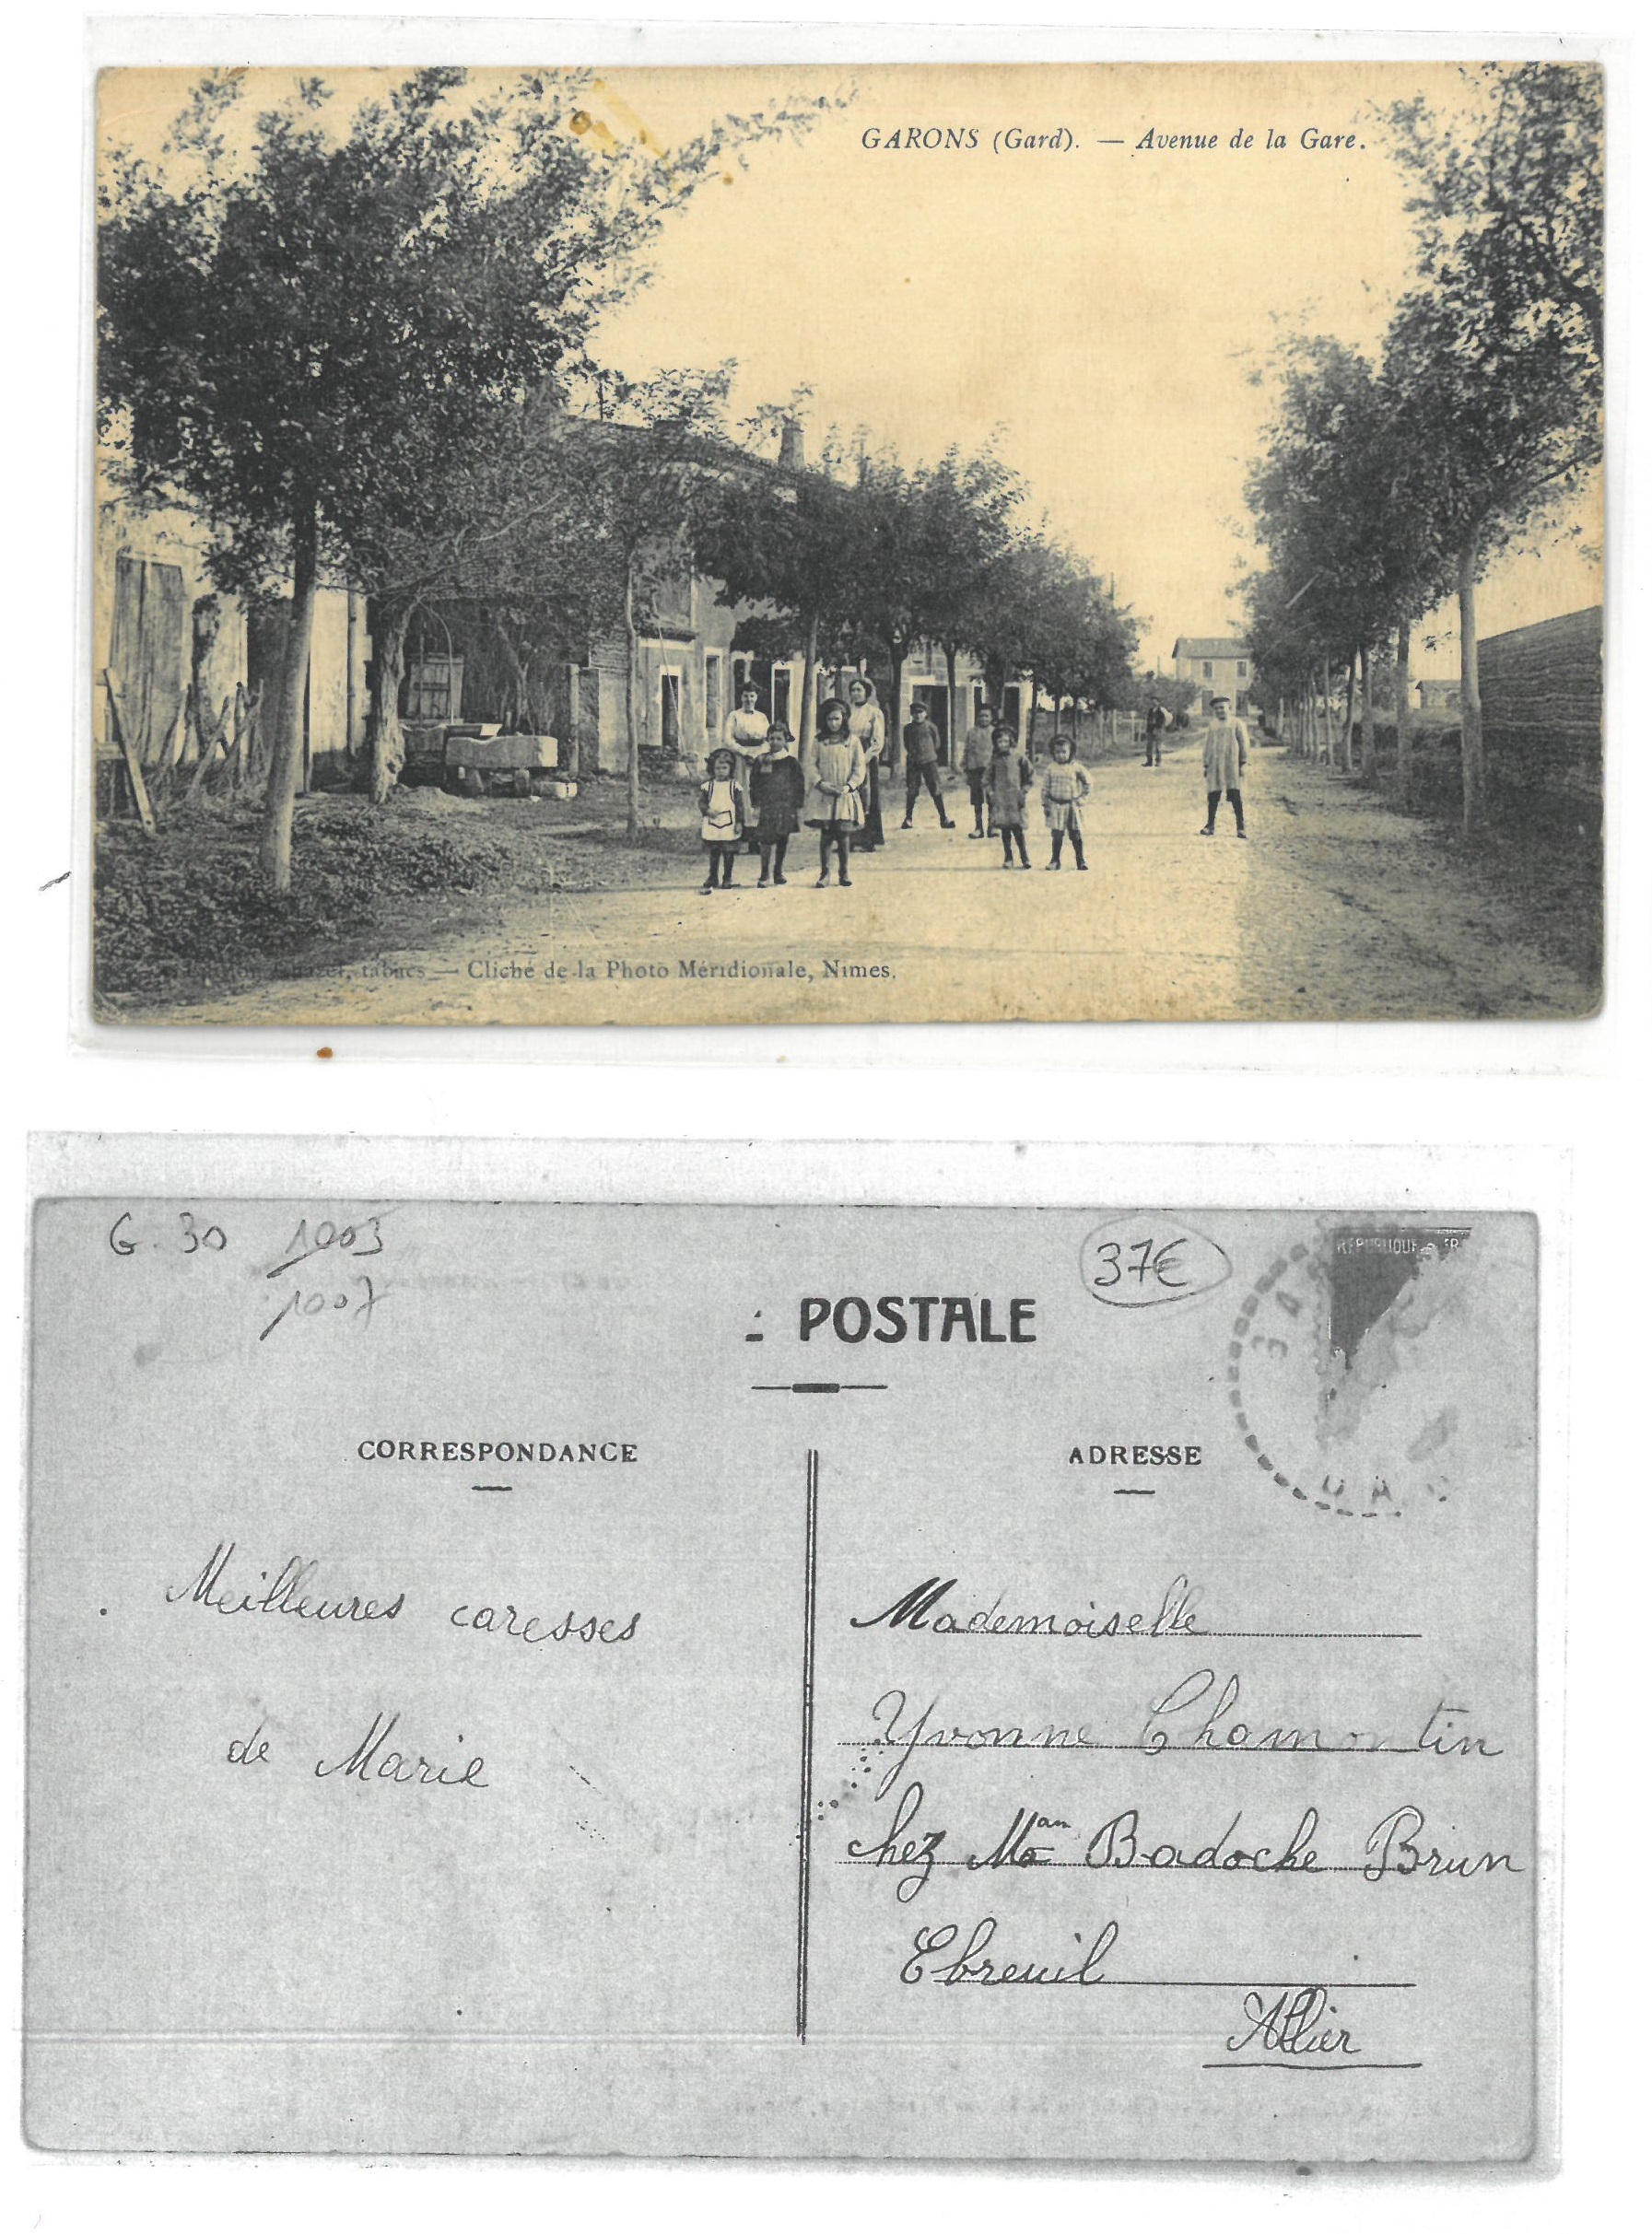 GARONS (Gard). — Avenue de la Gare.
tabacs — Cliché de la Photo Méridionale, Nimes.
G. 30 1003
1007
37€
REPUBLIQUE FR
POSTALE
CORRESPONDANCE
ADRESSE
Meilleures caresses
de Marie
Mademoiselle
Yvonne Chamontin
chez Man Badoche Brun
Ebreuil
Allier